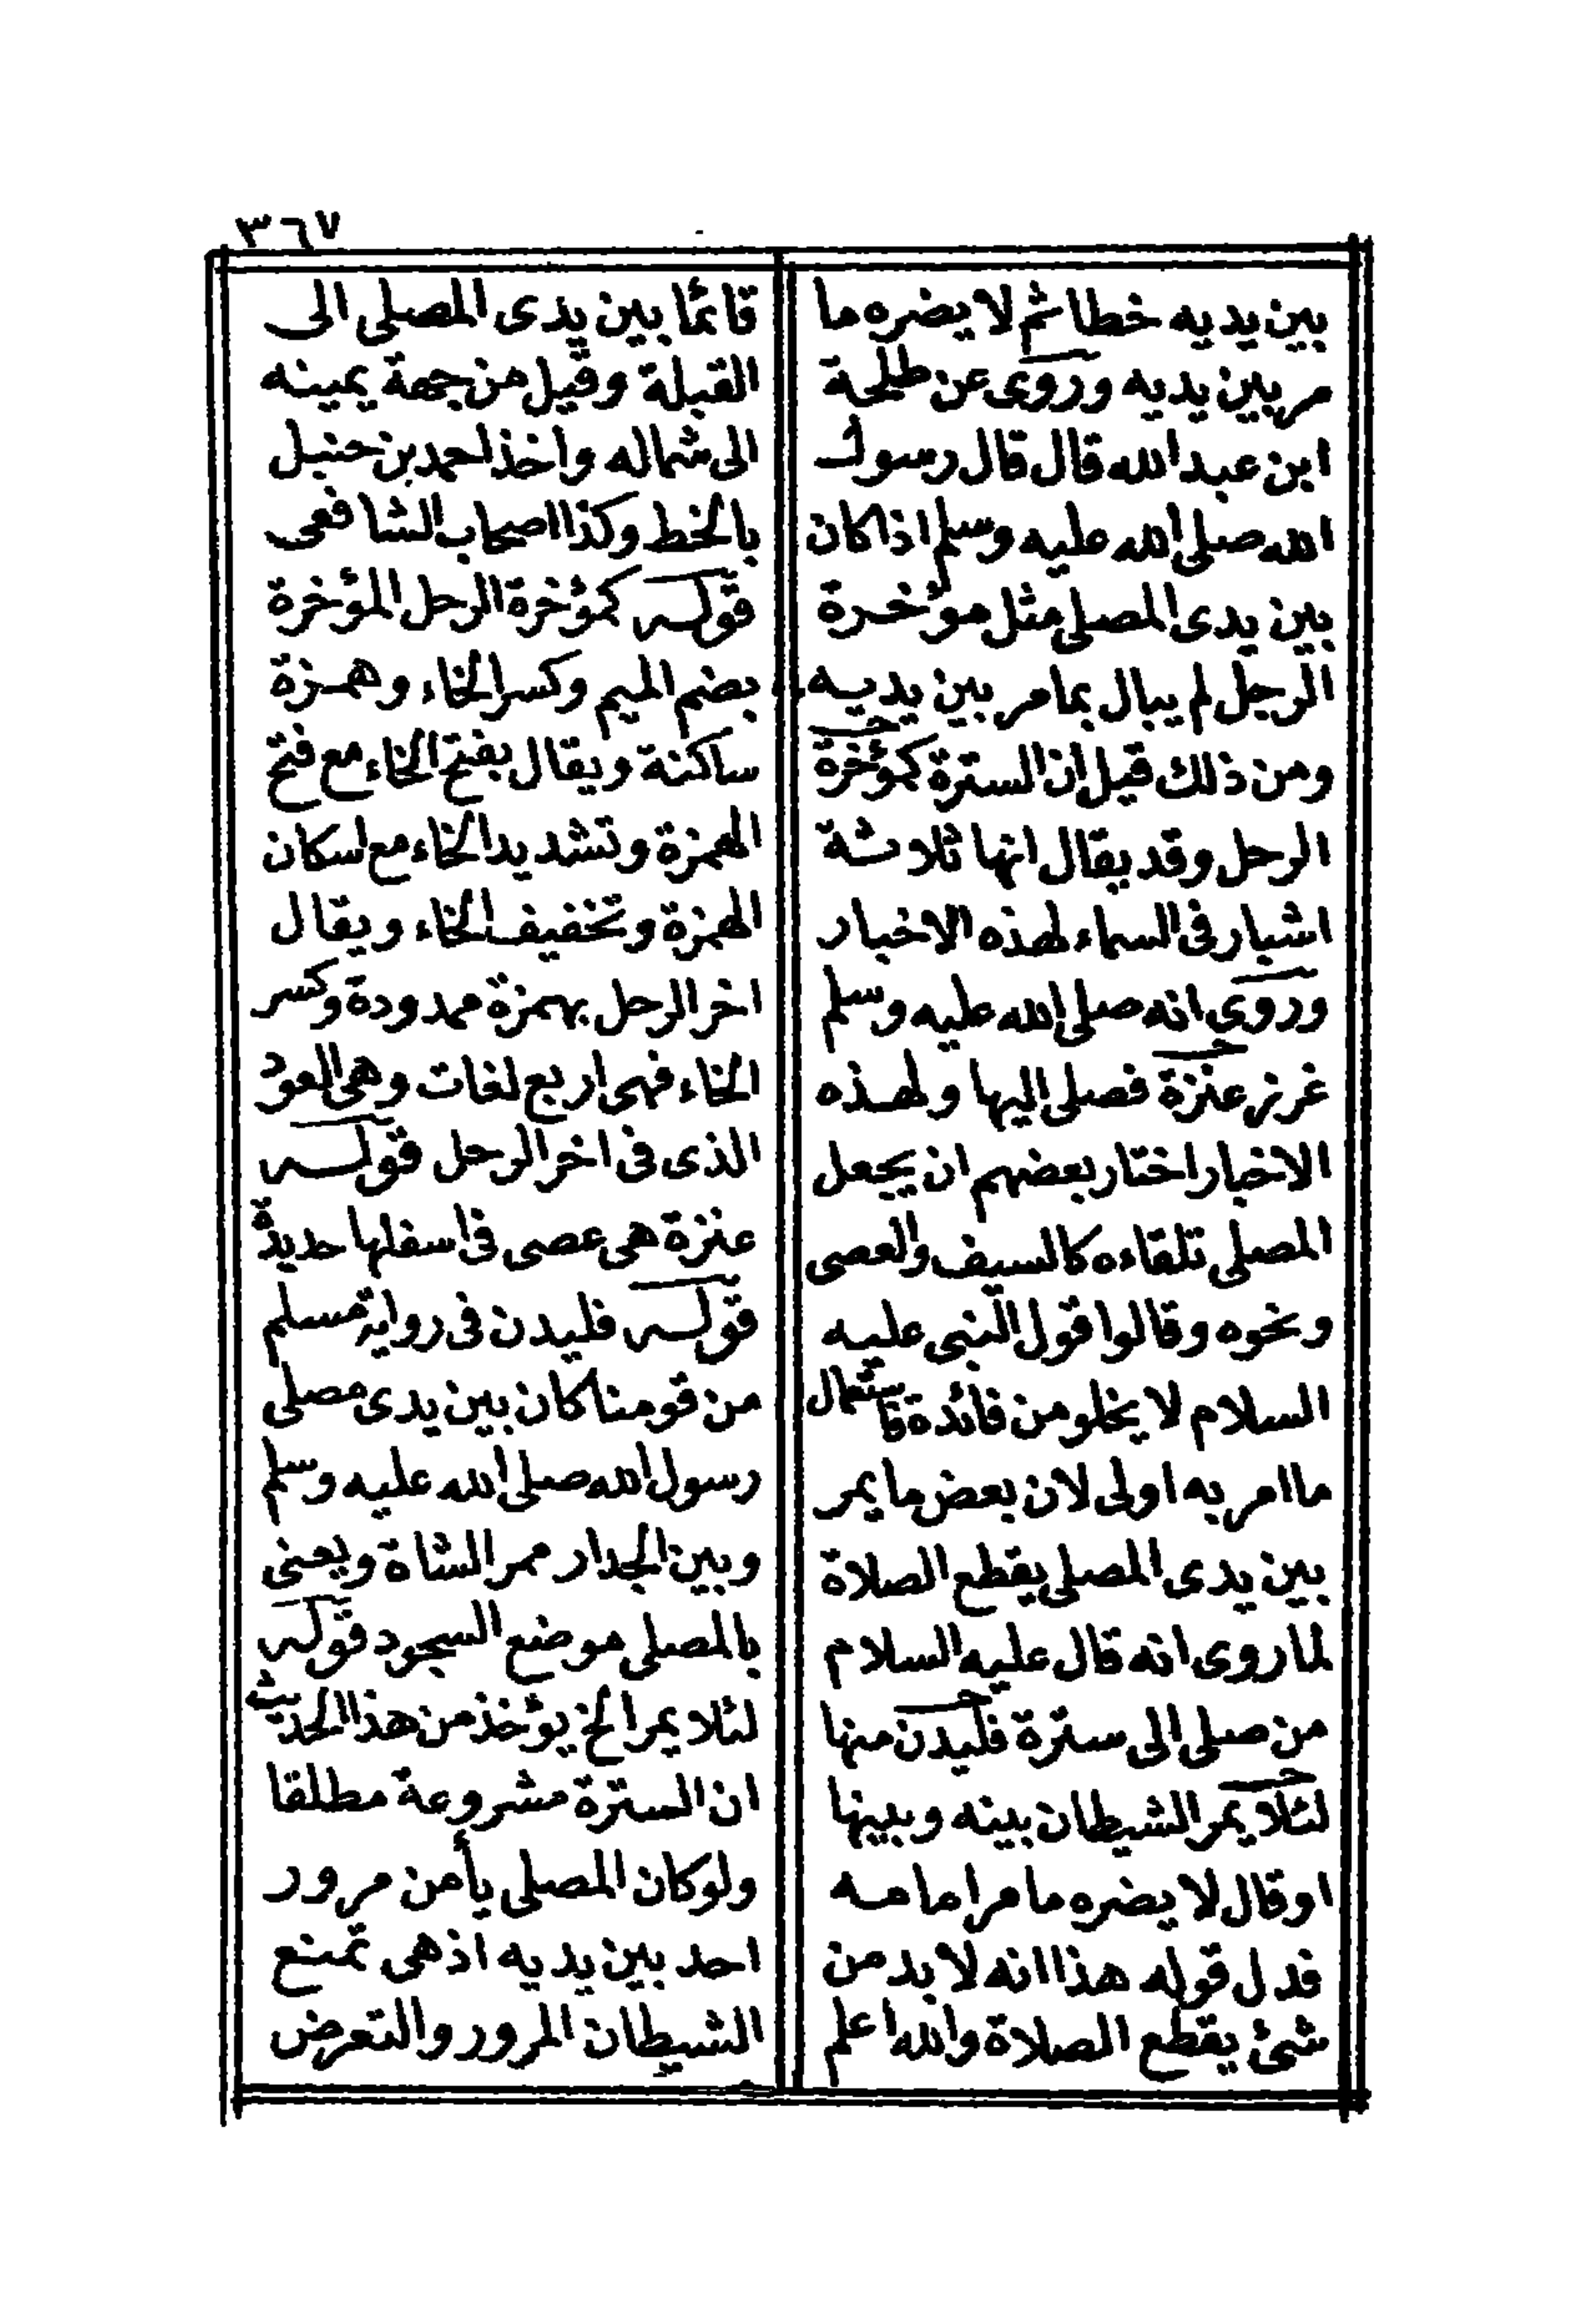 ٣٦٧
بين يديه خطا ثم لا يضره ما
مر بين يديه وروى عن طلحة
ابن عبد الله قال قال رسول
الله صلى الله عليه وسلم اذا كان
بين يدى المصلى مثل مؤخرة
الرحل لم يبال بما مر بين يديه
ومن ذلك قيل ان السترة كمؤخرة
الرحل وقد يقال انها ثلاثة
اشبار فى السماء لهذه الاخبار
وروى انه صلى الله عليه وسلم
غرز عنزة فصلى اليها ولهذه
الاخبار اختار بعضهم ان يجعل
المصلى تلقاءه كالسيف والعصى
ونحوه وقالوا قول النبى عليه
السلام لا يخلو من فائدة فاستعمال
ما امر به اولى لان بعض ما يمر
بين يدى المصلى يقطع الصلاة
لما روى انه قال عليه السلام
من صلى الى سترة فليدن منها
لئلا يمر الشيطان بينه وبينها
او قال لا يضره ما مر امامه
فدل قوله هذا انه لا بد من
شئ يقطع الصلاة والله اعلم
قائما بين يدى المصلى الى
القبلة وقيل من جهة يمينه
الى شماله واخذ احمد بن حنبل
بالخط وكذا اصحاب الشافعى
قوله كمؤخرة الرحل المؤخرة
بضم الميم وكسر الخاء وهمزة
ساكنة ويقال بفتح الخاء مع فتح
الهمزة وتشديد الخاء مع اسكان
الهمزة وتخفيف الخاء ويقال
اخر الرحل بهمزة ممدودة وكسر
الخاء فهى اربع لغات وهى العود
الذى فى اخر الرحل قوله
عنزة هى عصى فى اسفلها حديدة
قوله فليدن فى رواية مسلم
من قومنا كان بين يدى مصلى
رسول الله صلى الله عليه وسلم
وبين الجدار ممر الشاة ويعنى
بالمصلى موضع السجود قوله
لئلا يمر الخ يؤخذ من هذا الحديث
ان السترة مشروعة مطلقا
ولو كان المصلى يأمن مرور
احد بين يديه اذ هى تمنع
الشيطان المرور والتعرض